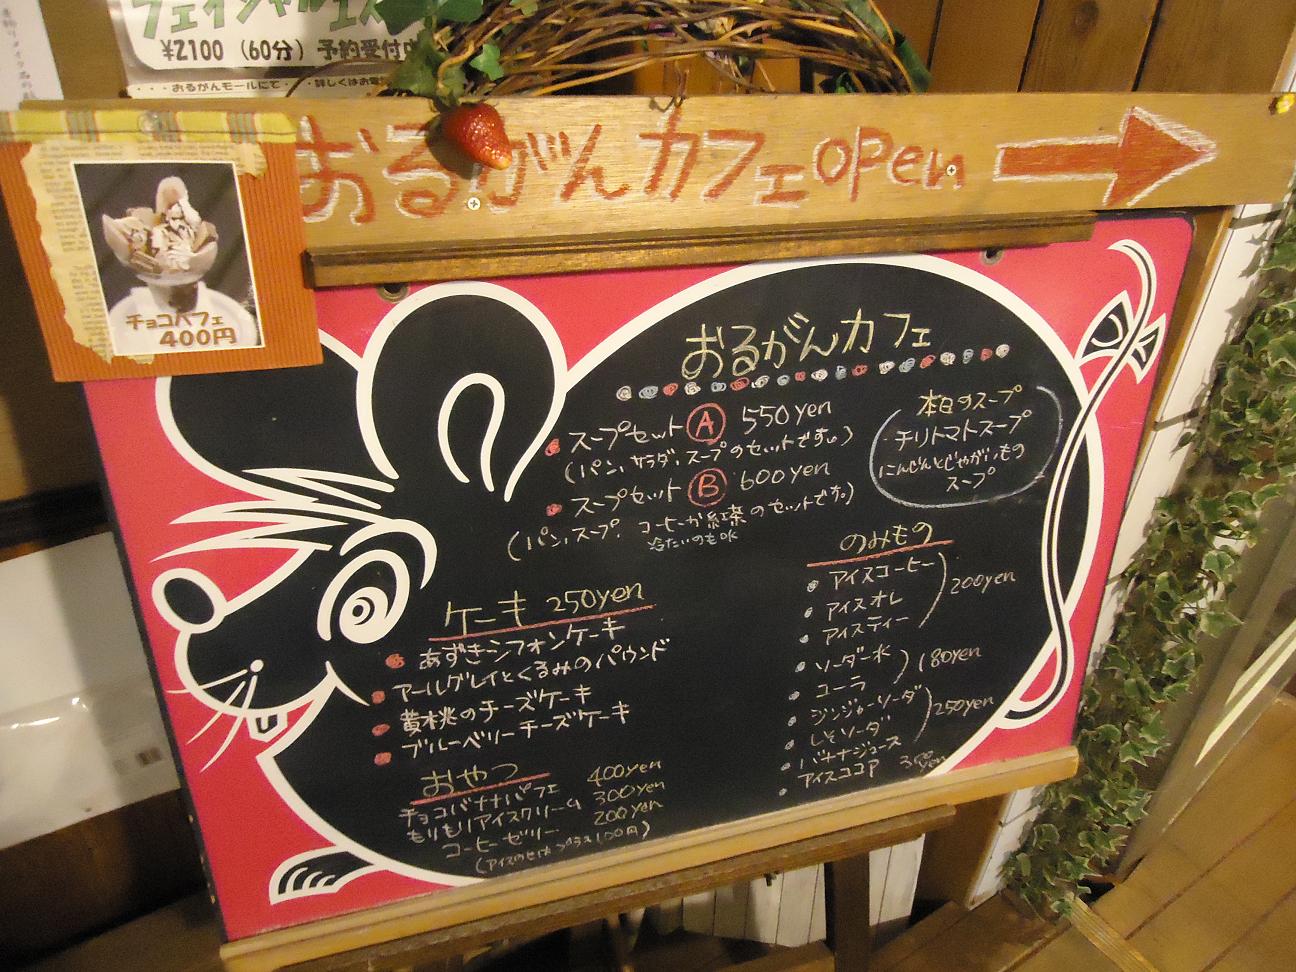 フェイシャルエステ
¥2100 (60分) 予約受付中
・・・おるがんモールにて・・・詳しくはお電
おるがんカフェopen
チョコパフェ
400円
おるがんカフェ
スープセットⒶ 550yen
(パン、サラダ、スープのセットです。)
スープセットⒷ 600yen
(パン、スープ、コーヒーか紅茶のセットです。)
冷たいのもOK
本日のスープ
・チリトマトスープ
にんじんとじゃがいもの
スープ
ケーキ 250yen
あずきシフォンケーキ
アールグレイとくるみのパウンド
黄桃のチーズケーキ
ブルーベリーチーズケーキ
おやつ
チョコバナナパフェ 400yen
もりもりアイスクリーム 300yen
コーヒーゼリー 200yen
(アイスのせは プラス100円)
のみもの
アイスコーヒー
アイスオレ
アイスティー
200yen
ソーダー水
コーラ
180yen
ジンジャーソーダ
しそソーダ
250yen
バナナジュース
アイスココア
300yen